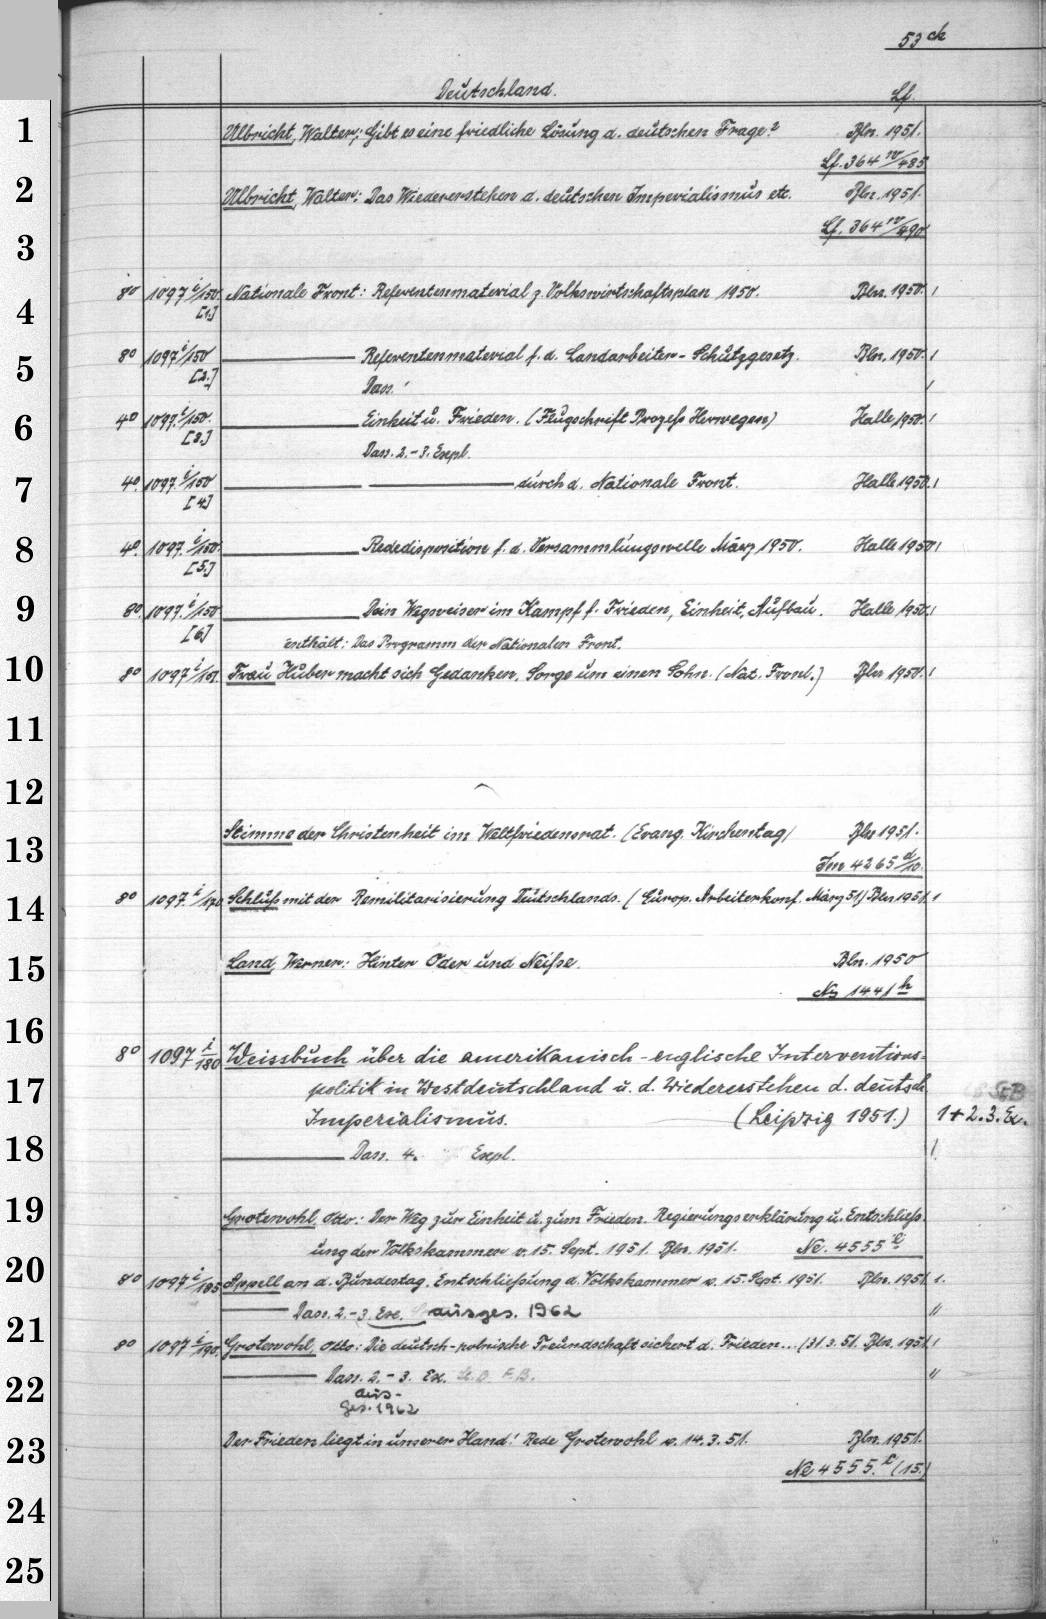 53 ck
Deutschland. Lf.
1 Ulbricht, Walter: Gibt es eine friedliche Lösung d. deutschen Frage? Bln. 1951.
Lf. 364 iv/485
2 Ulbricht, Walter: Das Wiedererstehen d. deutschen Imperialismus etc. Bln. 1951.
Lf. 364 iv/490
3
8° 1097 i/150. Nationale Front: Referentenmaterial z. Volkswirtschaftsplan 1950. Bln. 1950. 1
4 [1.]
5 8° 1097 i/150 Referentenmaterial f. d. Landarbeiter-Schutzgesetz. Bln. 1950. 1
[2.] Dass. 1
6 4° 1097. i/150. Einheit u. Frieden. (Flugschrift Prozess Herwegen) Halle 1950. 1
[3.] Dass. 2.-3. Expl.
7 4° 1097. i/150 durch d. Nationale Front. Halle 1950. 1
[4.]
8 4° 1097. i/150. Rededisposition f. d. Versammlungswelle März 1950. Halle 1950 1
[5.]
9 8° 1097. i/150 Dein Wegweiser im Kampf f. Frieden, Einheit, Aufbau. Halle 1950. 1
[6] enthält: Das Programm der Nationalen Front.
10 8° 1097 i/161. Frau Huber macht sich Gedanken. Sorge um einen Sohn. (Nat. Front.) Bln 1950. 1
11
12
13 Stimme der Christenheit im Weltfriedensrat. (Evang. Kirchentag) Bln 1951.
Im 4265 d/10.
14 8° 1097. i/170 Schluß mit der Remilitarisierung Deutschlands. (Europ. Arbeiterkonf. März 51) Bln 1951. 1
15 Land, Werner: Hinter Oder und Neiße. Bln. 1950
Nz 1441 h
16
8° 1097 i/180 Weissbuch über die amerikanisch-englische Interventions-
17 politik in Westdeutschland u. d. Wiedererstehen d. deutsch.
Imperialismus. (Leipzig 1951.) 1+2.3. Ex.
18 Dass. 4. Expl. 1.
19 Grotewohl, Otto: Der Weg zur Einheit u. zum Frieden. Regierungserklärung u. Entschließ-
ung der Volkskammer v. 15. Sept. 1951. Bln. 1951. Ne. 4555
20 8° 1097 i/185 Appell an d. Bundestag. Entschließung d. Volkskammer v. 15. Sept. 1951. Bln. 1951. 1.
Dass. 2.-3. Ex. ausges. 1962 "
21 8° 1097 i/190. Grotewohl, Otto: Die deutsch-polnische Freundschaft sichert d. Frieden... (31.3.51. Bln. 1951. 1
22 Dass. 2.-3. Ex. "
aus-
ges. 1962
23 Der Frieden liegt in unserer Hand! Rede Grotewohl v. 14.3.51. Bln. 1951.
Ne 4555. (15.)
24
25